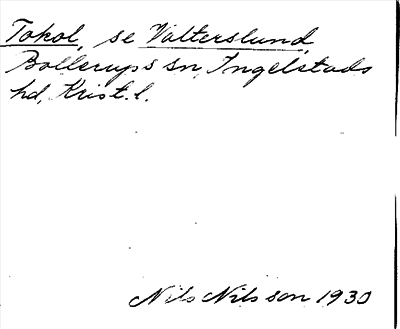 Tokol, se Valterslund,
Bollerups sn, Ingelstads
hd, Krist. l.
Nils Nilsson 1930